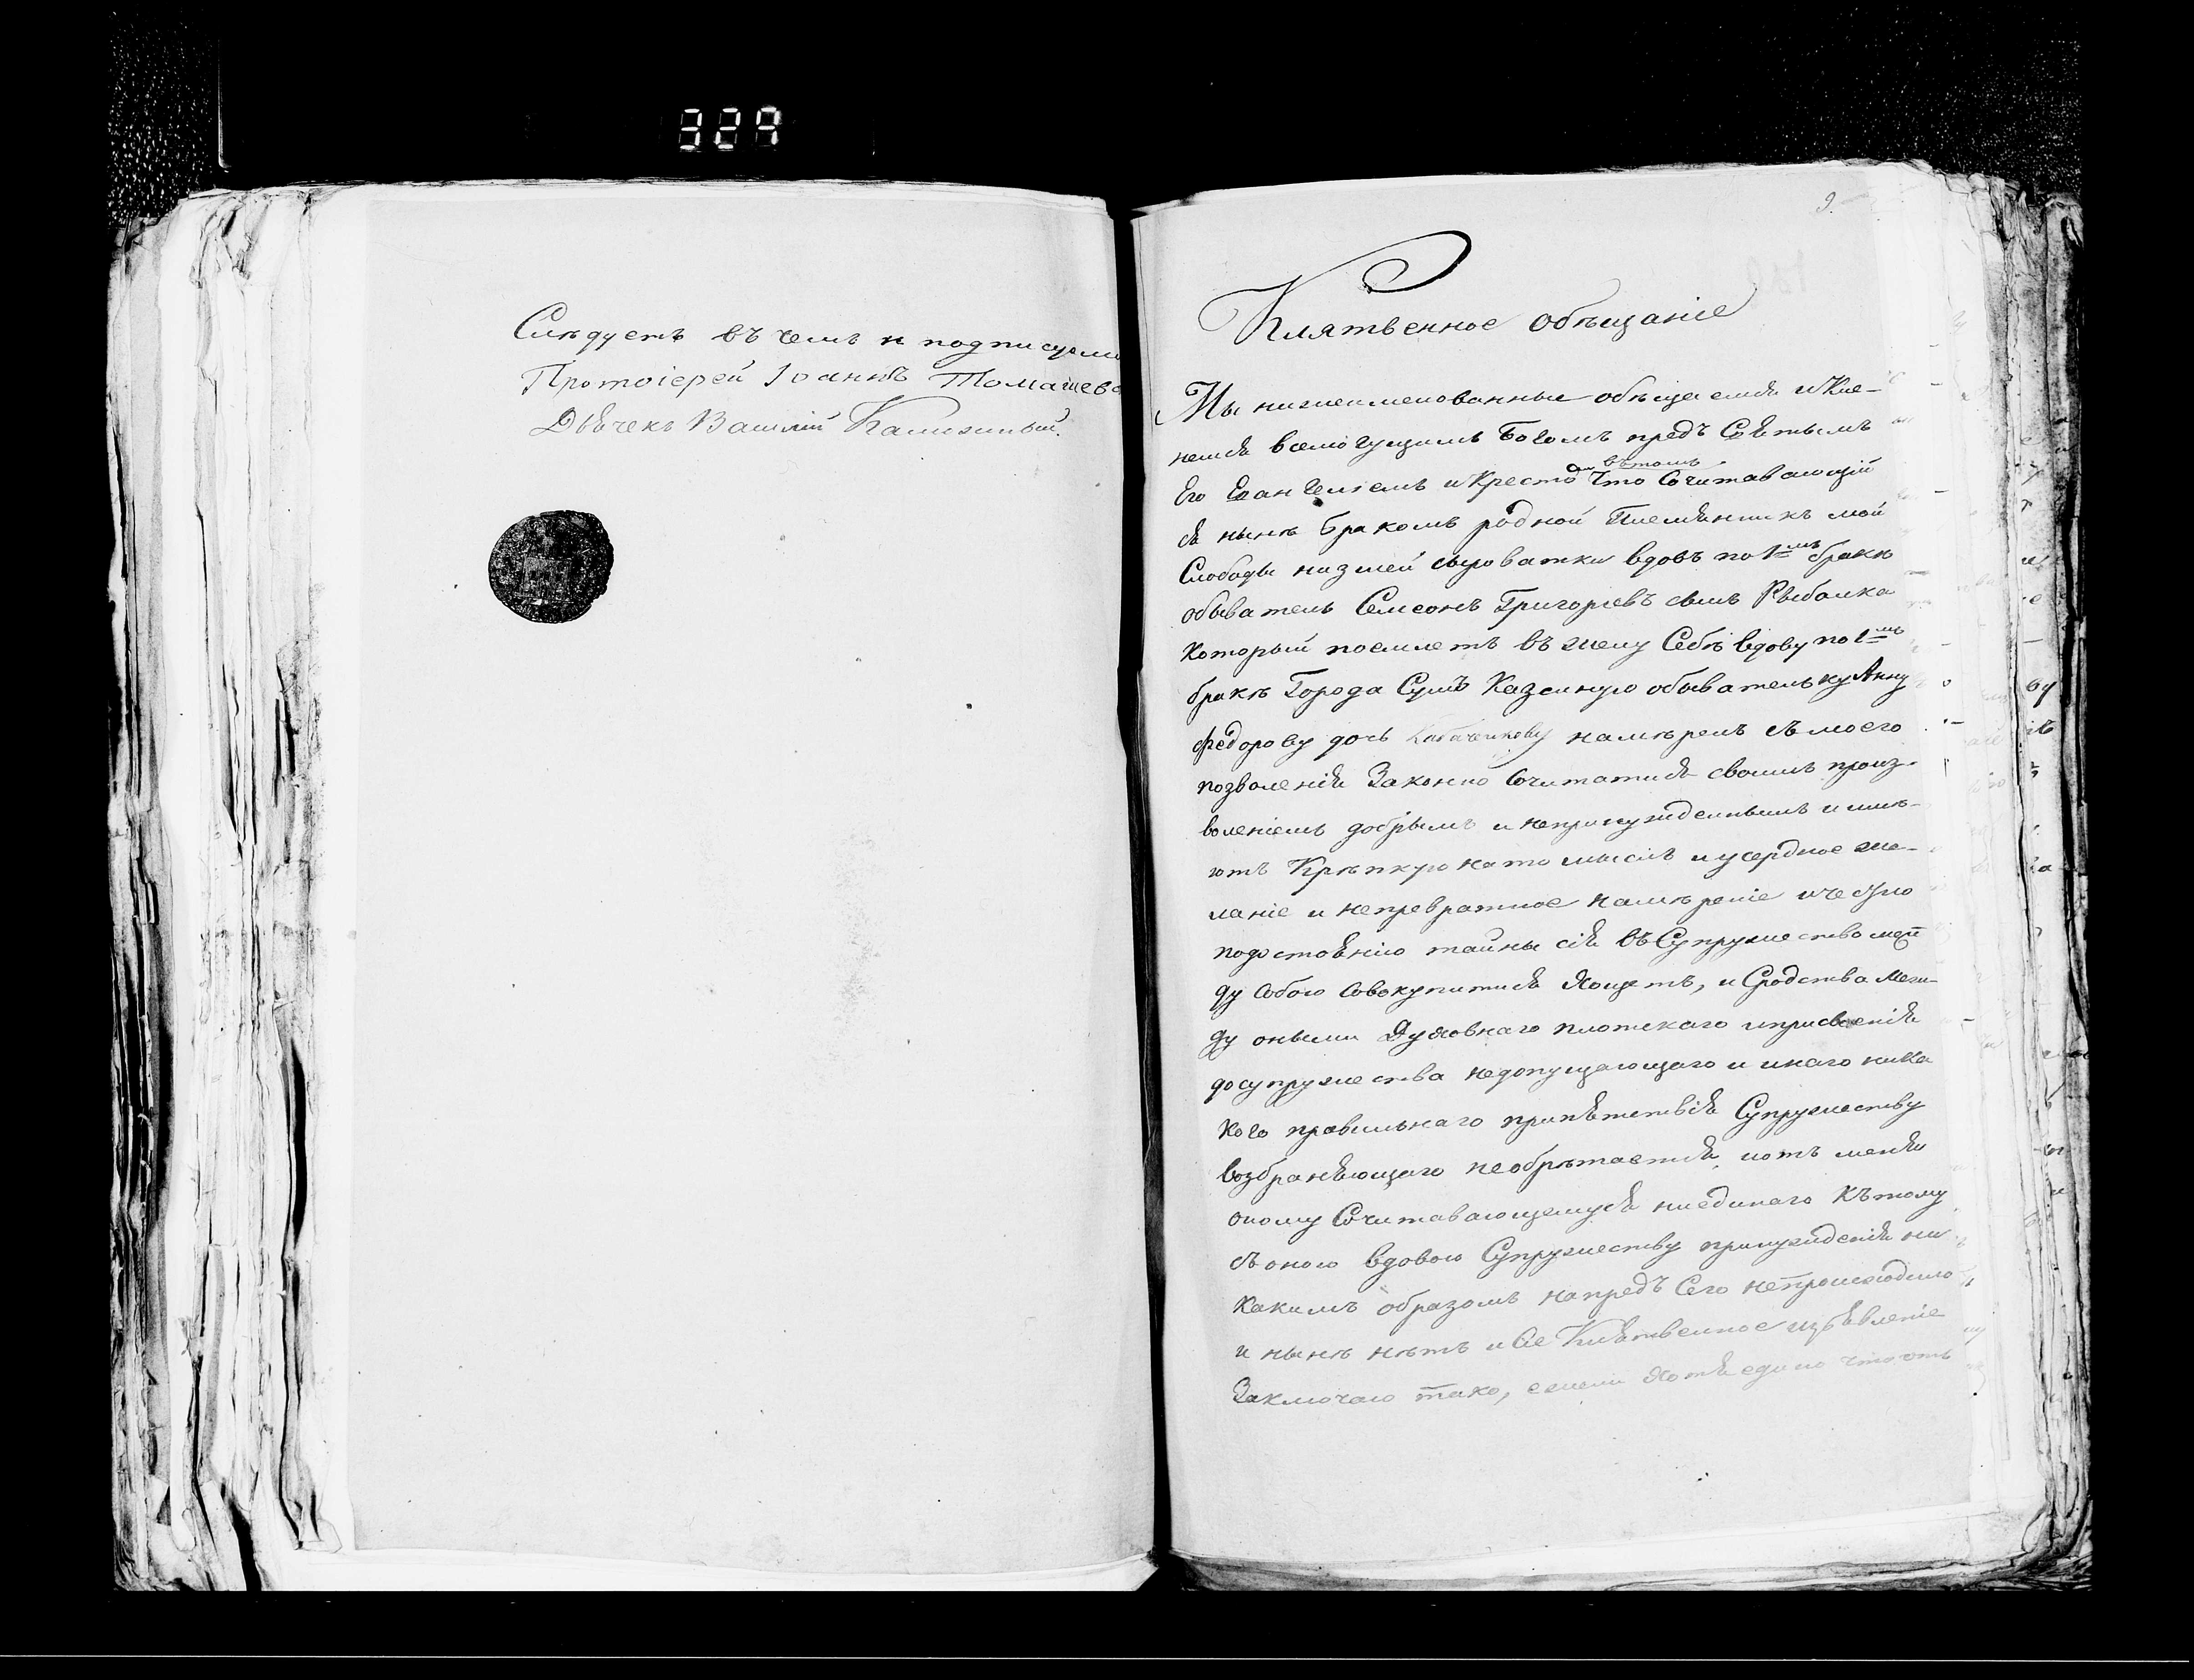 329
Слѣдуетъ въ чемъ и подписуемся
Протоіерей Іоаннъ Томашевс
Дьячекъ Василій
9.
Клятвенное обѣщаніе
Мы нижеименованные обѣщаемся и кле-
немся всемогущимъ Богомъ предъ Святымъ
въ томъ
Его Евангеліемъ и Крестомъ Что Сочитавающій
ся нынѣ бракомъ родной Племянникъ мой
Слободы низшей сыроватки вдовъ по 1мъ бракѣ
обыватель Семеонъ Григоріевъ сынъ Рыбалка
который поемлетъ въ жену Себѣ вдову по 1мъ
бракѣ Города Сумъ Казенную обывательку Анну
федорову дочь намѣренъ съ моего
позволенія Законно Сочитатися своимъ произ-
воленіемъ добрымъ и непринужденнымъ и имѣ-
ютъ Крѣпкую на то мысль и усердное же-
ланіе и непревратное намѣреніе и честно
по достоянію тайны сія въ Супружество меж
ду собою совокупитися Хощетъ, и Сродства меж-
ду оными Духовнаго плотскаго и присвоенія
до супружества недопущающаго и инаго ника
кого правильнаго препятствія Супружеству
возбраняющаго необрѣтается, и отъ меня
оному Сочитавающемуся ниединаго къ тому
съ оною вдовою Супружеству принужденія ни
какимъ образомъ напредъ Сего непроисходило
и нынѣ нѣтъ и Сіе Клятвенное изъявленіе
Заключаю тако, ежели Хотя едино что отъ